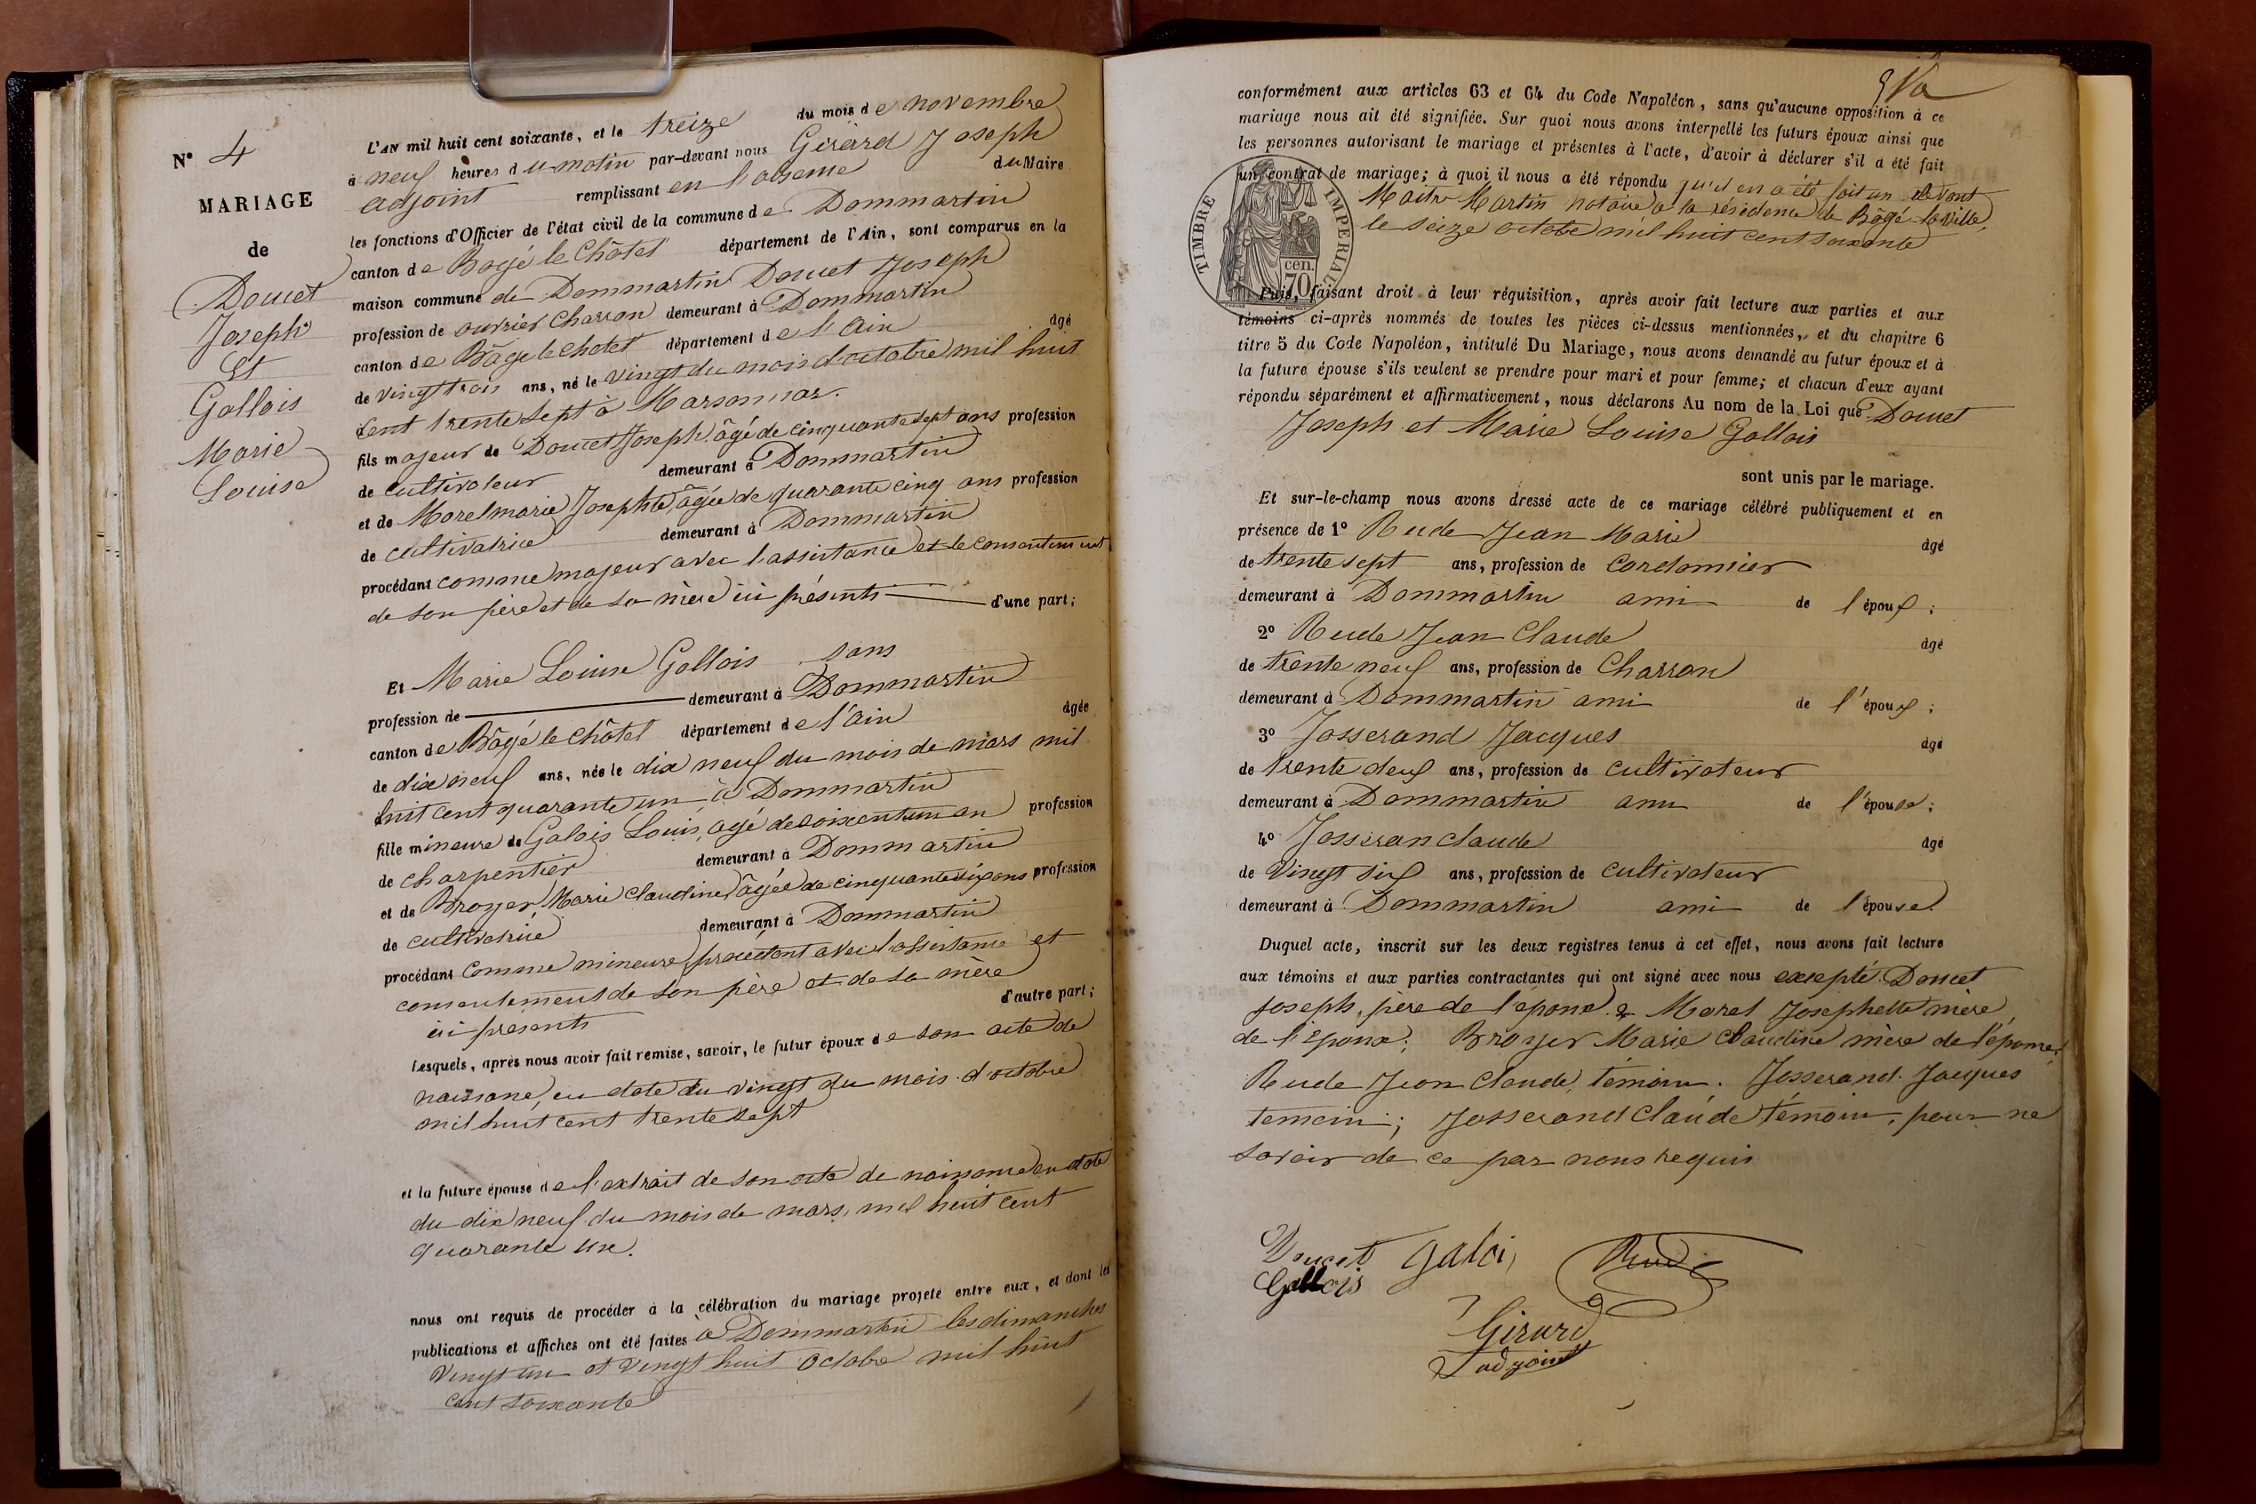 N° 4
MARIAGE
de
Doucet
Joseph
Et
Gallois
Marie
Louise
L'AN mil huit cent soixante, et le treize du mois de novembre
à neuf heures du matin par-devant nous Girard Joseph
adjoint remplissant en l'absence du Maire
les fonctions d'Officier de l'état civil de la commune de Dommartin
canton de Bâgé le Châtel département de l'Ain, sont comparus en la
maison commune de Dommartin Doucet Joseph
profession de ouvrier Charron demeurant à Dommartin
canton de Bâgé le Chatel département de l'Ain âgé
de vingt trois ans, né le vingt du mois d'octobre mil huit
cent trente sept à Marsonnas.
fils majeur de Doucet Joseph, âgé de cinquante sept ans profession
de cultivateur demeurant à Dommartin
et de Morel marie Josephte, âgée de quarante cinq ans profession
de cultivatrice demeurant à Dommartin
procédant comme majeur avec l'assistance et le consentement
de son père et de sa mère ici présents d'une part;
Et Marie Louise Gallois sans
profession de demeurant à Dommartin
canton de Bâgé le Châtel département de l'Ain âgée
de dix neuf ans, née le dix neuf du mois de mars mil
huit cent quarante un à Dommartin
fille mineure de Galois Louis, agé de soixante un an profession
de charpentier demeurant à Dommartin
et de Broyer Marie Claudine âgée de cinquante six ans profession
de cultivatrice demeurant à Dommartin
procédant comme mineure procédant avec l'assistance et
consentement de son père et de sa mère
ici présents d'autre part;
Lesquels, après nous avoir fait remise, savoir, le futur époux de son acte de
naissance, en date du vingt du mois d'octobre
mil huit cent trente sept
et la future épouse de l'extrait de son acte de naissance en date
du dix neuf du mois de mars, mil huit cent
quarante un.
nous ont requis de procéder à la célébration du mariage projeté entre eux, et dont les
publications et affiches ont été faites à Dommartin les dimanches
vingt un et vingt huit octobre mil huit
cent soixante
conformément aux articles 63 et 64 du Code Napoléon, sans qu'aucune opposition à ce
mariage nous ait été signifiée. Sur quoi nous avons interpellé les futurs époux ainsi que
les personnes autorisant le mariage et présentes à l'acte, d'avoir à déclarer s'il a été fait
un contrat de mariage; à quoi il nous a été répondu qu'il en a été fait un devant
Maitre Martin notaire à la résidence de Bâgé la ville,
le seize octobre mil huit cent soixante
TIMBRE IMPERIAL
70 cen.
Puis, faisant droit à leur réquisition, après avoir fait lecture aux parties et aux
témoins ci-après nommés de toutes les pièces ci-dessus mentionnées, et du chapitre 6
titre 5 du Code Napoléon, intitulé Du Mariage, nous avons demandé au futur époux et à
la future épouse s'ils veulent se prendre pour mari et pour femme; et chacun d'eux ayant
répondu séparément et affirmativement, nous déclarons Au nom de la Loi que Doucet
Joseph et Marie Louise Gallois
sont unis par le mariage.
Et sur-le-champ nous avons dressé acte de ce mariage célébré publiquement et en
présence de 1° Rude Jean Marie âgé
de trente sept ans, profession de Cordonnier
demeurant à Dommartin ami de l'époux;
2° Rude Jean Claude âgé
de trente neuf ans, profession de Charron
demeurant à Dommartin ami de l'époux;
3° Josserand Jacques âgé
de trente deux ans, profession de cultivateur
demeurant à Dommartin ami de l'épouse;
4° Josseran claude âgé
de Vingt six ans, profession de cultivateur
demeurant à Dommartin ami de l'épouse.
Duquel acte, inscrit sur les deux registres tenus à cet effet, nous avons fait lecture
aux témoins et aux parties contractantes qui ont signé avec nous excepté Doucet
Joseph, père de l'époux & Morel Josephette mère
de l'Epoux; Broyer Marie Claudine mère de l'épouse
Rude Jean Claude, témoin. Josserand Jacques
temoin; Josserand Claude témoin, pour ne
savoir de ce par nous requis
Doucet Galoi Rude
Gallois
Girard
adjoint